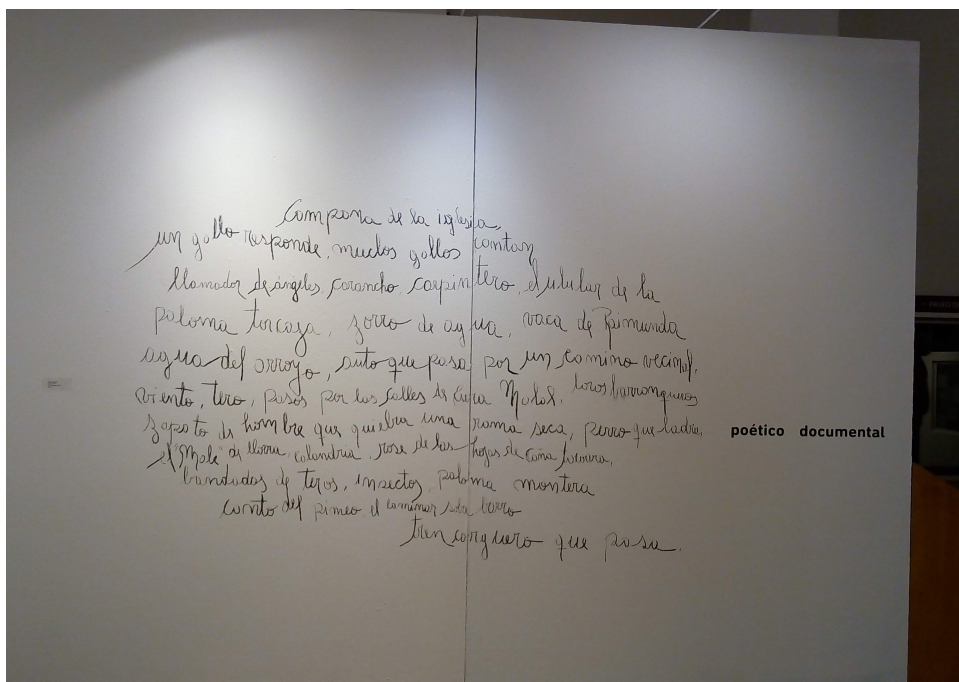 Campana de la iglesia,
un gallo responde, muchos gallos cantan
llamador de ángeles, carancho, carpintero, el ulular de la
paloma torcaza, zorro de agua, vaca de Raimunda
agua del arroyo, auto que pasa por un camino vecinal,
viento, tero, pasos por las calles de Cura Malal, loros barranqueros
zapato de hombre que quiebra una rama seca, perro que ladra,
el "Mole" de lloria, calandria, rose de las hojas de caña
bandadas de teros, insectos, paloma montera
canto del pimeo el caminar sobre barro
tren carguero que pasa.
poético documental